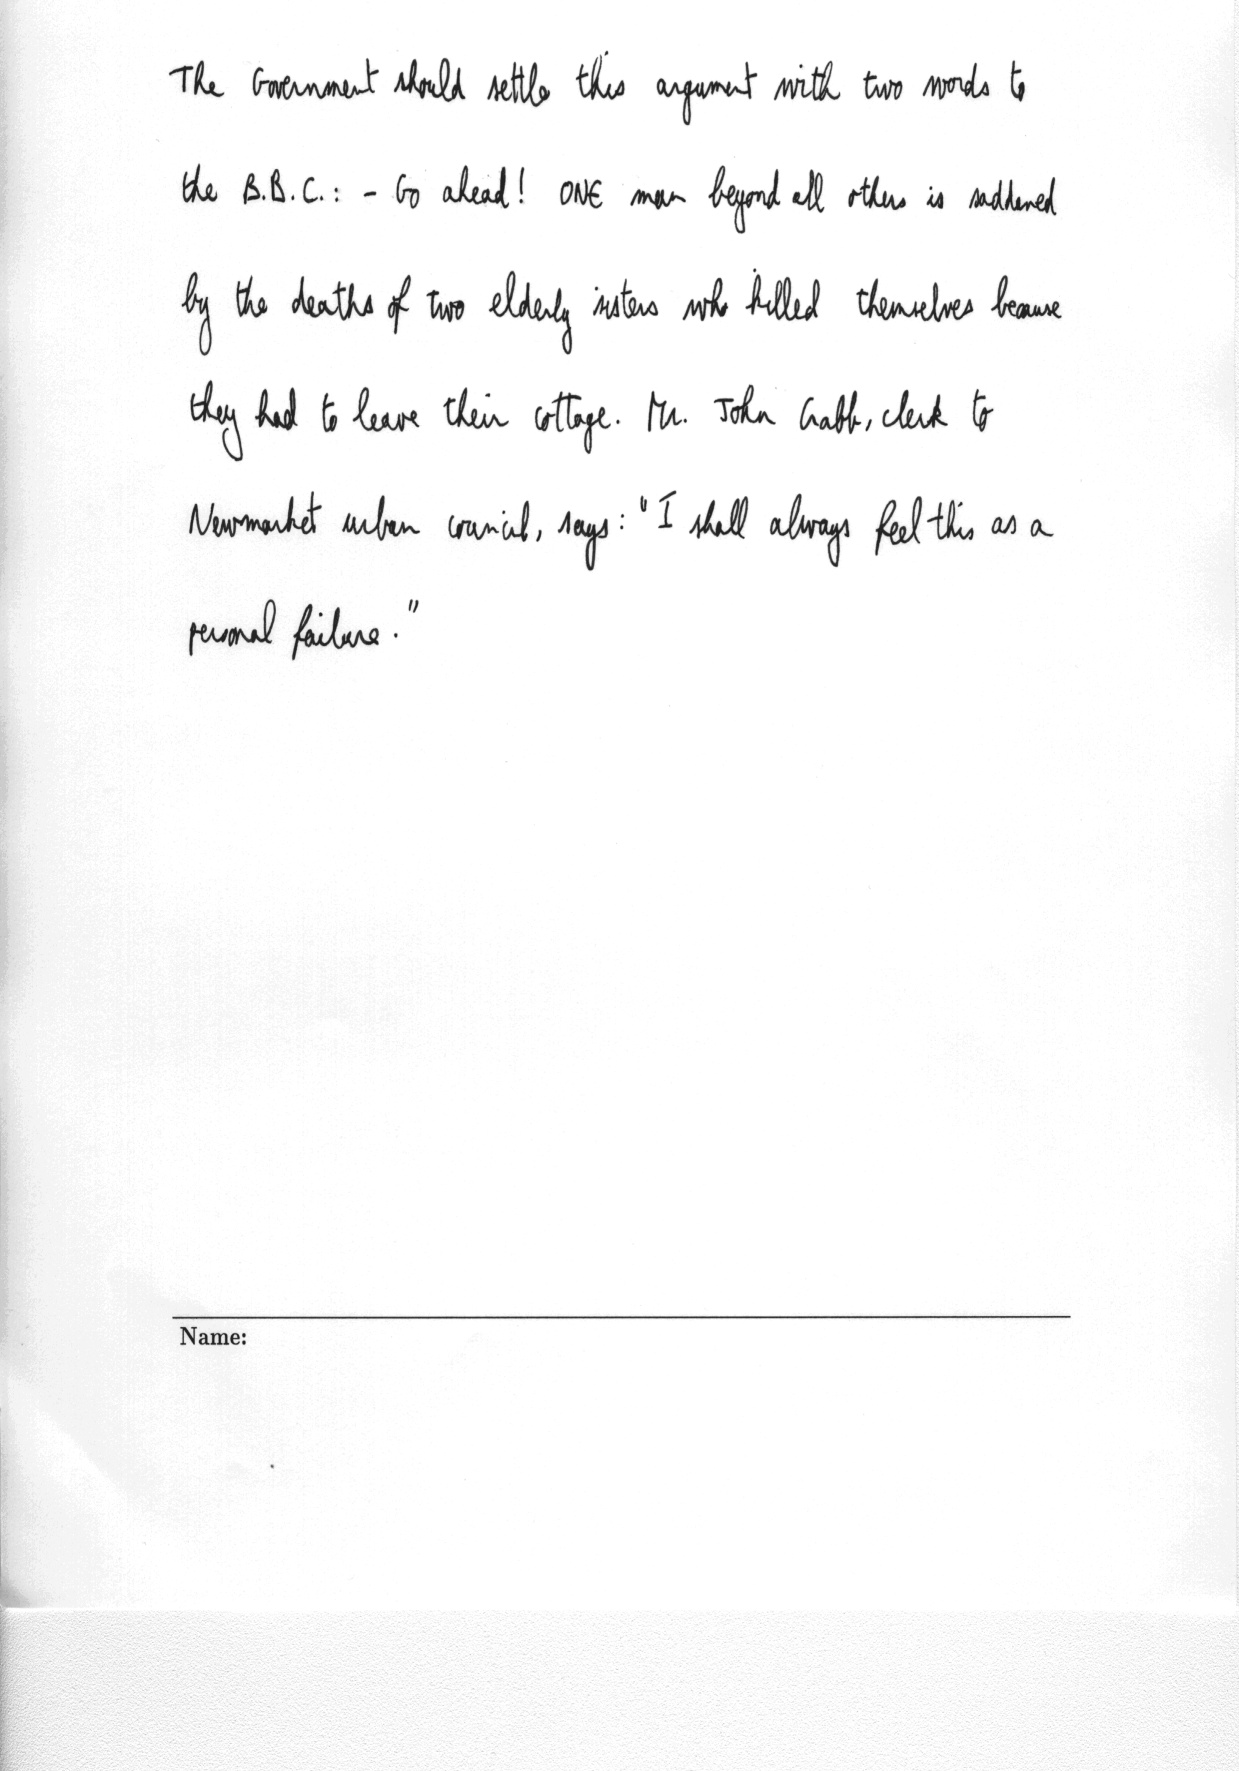 The Government should settle this argument with two words to
the B.B.C.: - Go ahead! ONE man beyond all others is saddened
by the deaths of two elderly sisters who killed themselves because
they had to leave their cottage. Mr. John Crabb, clerk to
Newmarket urban council, says: "I shall always feel this as a
personal failure."
Name: